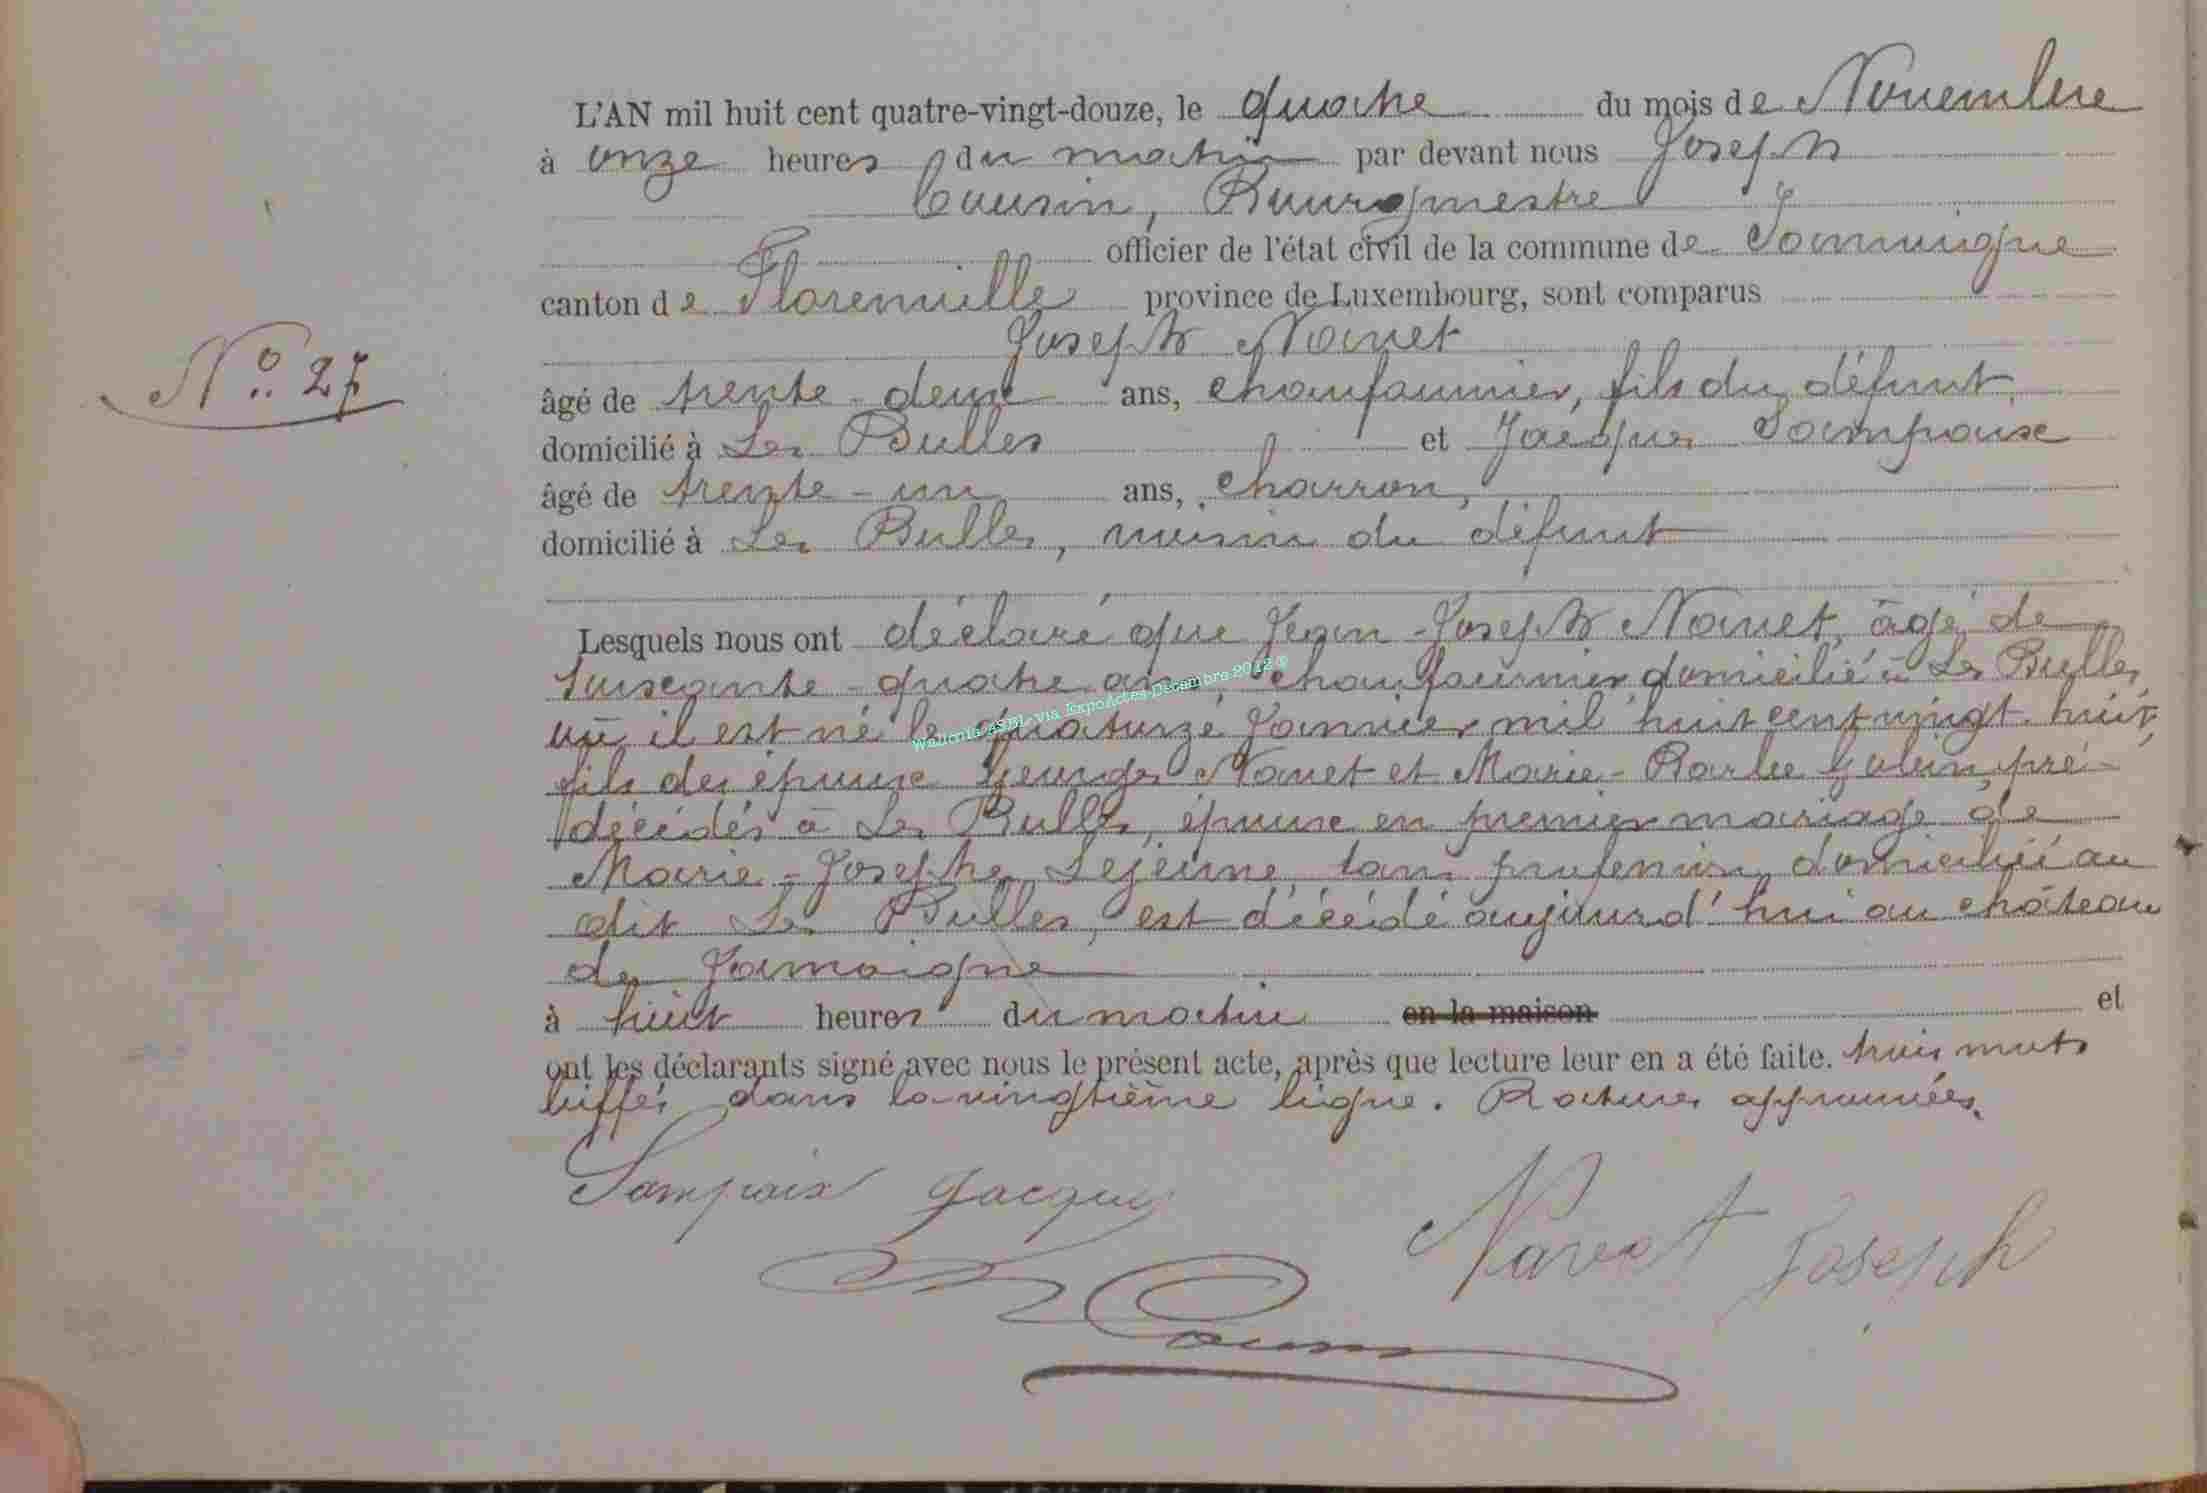 L'AN mil huit cent quatre-vingt-douze, le quatre du mois de Novembre
à onze heures du matin par devant nous Joseph
Cousin, Bourgmestre
officier de l'état civil de la commune de Jamoigne
canton de Florenville province de Luxembourg, sont comparus
Joseph Navet
N° 27
âgé de trente-deux ans, chaufournier, fils du défunt
domicilié à Les Bulles et Jacques Sampaix
âgé de trente-un ans, charron,
domicilié à Les Bulles, voisin du défunt
Lesquels nous ont déclaré que Jean-Joseph Navet, âgé de
soixante-quatre ans, chaufournier domicilié à Les Bulles
où il est né le quatorze Janvier mil huit cent vingt-huit,
fils des époux Georges Navet et Marie-Barbe pré-
décédés à Les Bulles, époux en premier mariage de
Marie-Josèphe Lejeune, sans profession, domiciliée au
dit Les Bulles, est décédé aujourd'hui au château
de Jamoigne
à huit heures du matin en la maison et
ont les déclarants signé avec nous le présent acte, après que lecture leur en a été faite. trois mots
biffés dans la vingtième ligne. Ratures approuvées.
Sampaix Jacques
Navet Joseph
Cousin
Wallonia ASBL via ExpoActes-Décembre 2012 ©